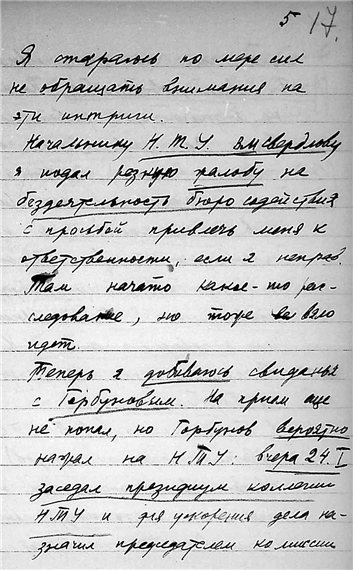 5 17.
Я стараюсь по мере сил
не обращать внимания на
эти интриги.
Начальнику Н.Т.У. Свердлову
я подал резкую жалобу на
бездеятельность бюро содействия
с просьбой привлечь меня к
ответственности, если я неправ.
Там начато какое-то рас-
следование, но тоже вяло
идет.
Теперь я добиваюсь свиданья
с Горбуновым. На прием еще
не попал, но Горбунов вероятно
нажал на НТУ: вчера 24.I
заседал президиум коллегии
НТУ и для ускорения дела на-
значил председателем комиссии